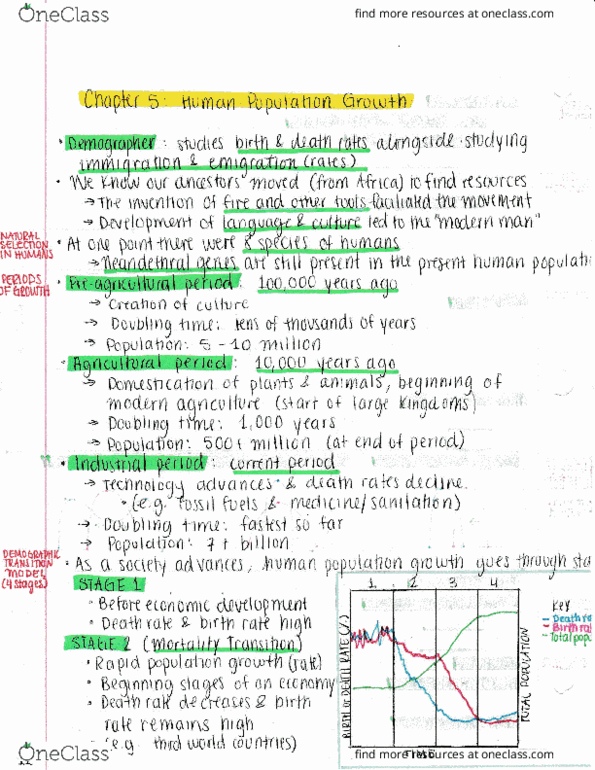 OneClass
find more resources at oneclass.com
Chapter 5: Human Population Growth
• Demographer: studies birth & death rates alongside studying
immigration & emigration (rates)
• We know our ancestors moved (from Africa) to find resources
→ The invention of fire and other tools faciliated the movement
→ Development of language & culture led to the "modern man"
NATURAL SELECTION IN HUMANS
• At one point there were 8 species of humans
→ Neandethral genes are still present in the present human populati
PERIODS OF GROWTH
• Pre-agricultural period: 100,000 years ago
→ Creation of culture
→ Doubling time: tens of thousands of years
→ Population: 5-10 million
• Agricultural period: 10,000 years ago
→ Domestication of plants & animals, beginning of
modern agriculture (start of large kingdoms)
→ Doubling time: 1,000 years
→ Population: 500+ million (at end of period)
• Industrial period: current period
→ Technology advances & death rates decline.
• (e.g. fossil fuels & medicine/sanitation)
→ Doubling time: fastest so far
→ Population: 7+ billion
DEMOGRAPHIC TRANSITION MODEL (4 stages)
• As a society advances, human population growth goes through sta
STAGE 1
• Before economic development
• Death rate & birth rate high
STAGE 2 (Mortality Transition)
• Rapid population growth (rate)
• Beginning stages of an economy
• Death rate decreases & birth
rate remains high
(e.g. third world countries)
1 2 3 4
BIRTH OR DEATH RATE (%)
TIME
TOTAL POPULATION
KEY
- Death ra
- Birth rat
- Total popu
OneClass
find more resources at oneclass.com